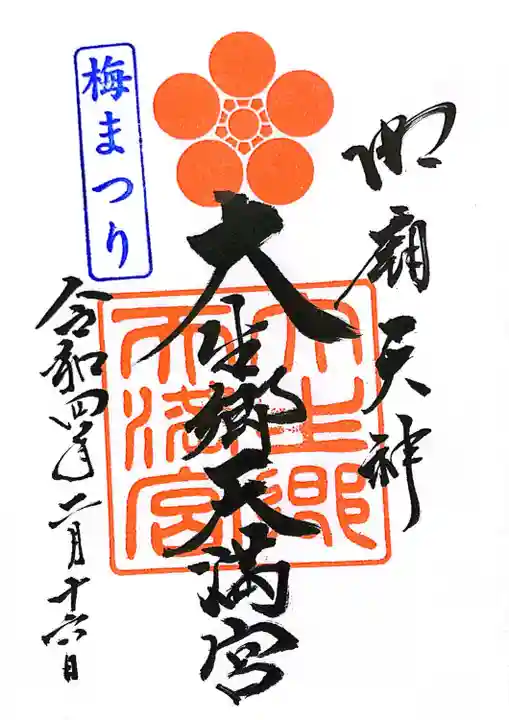 御廟天神
大生郷天満宮
大生郷
天満宮
梅まつり
令和四年二月十六日